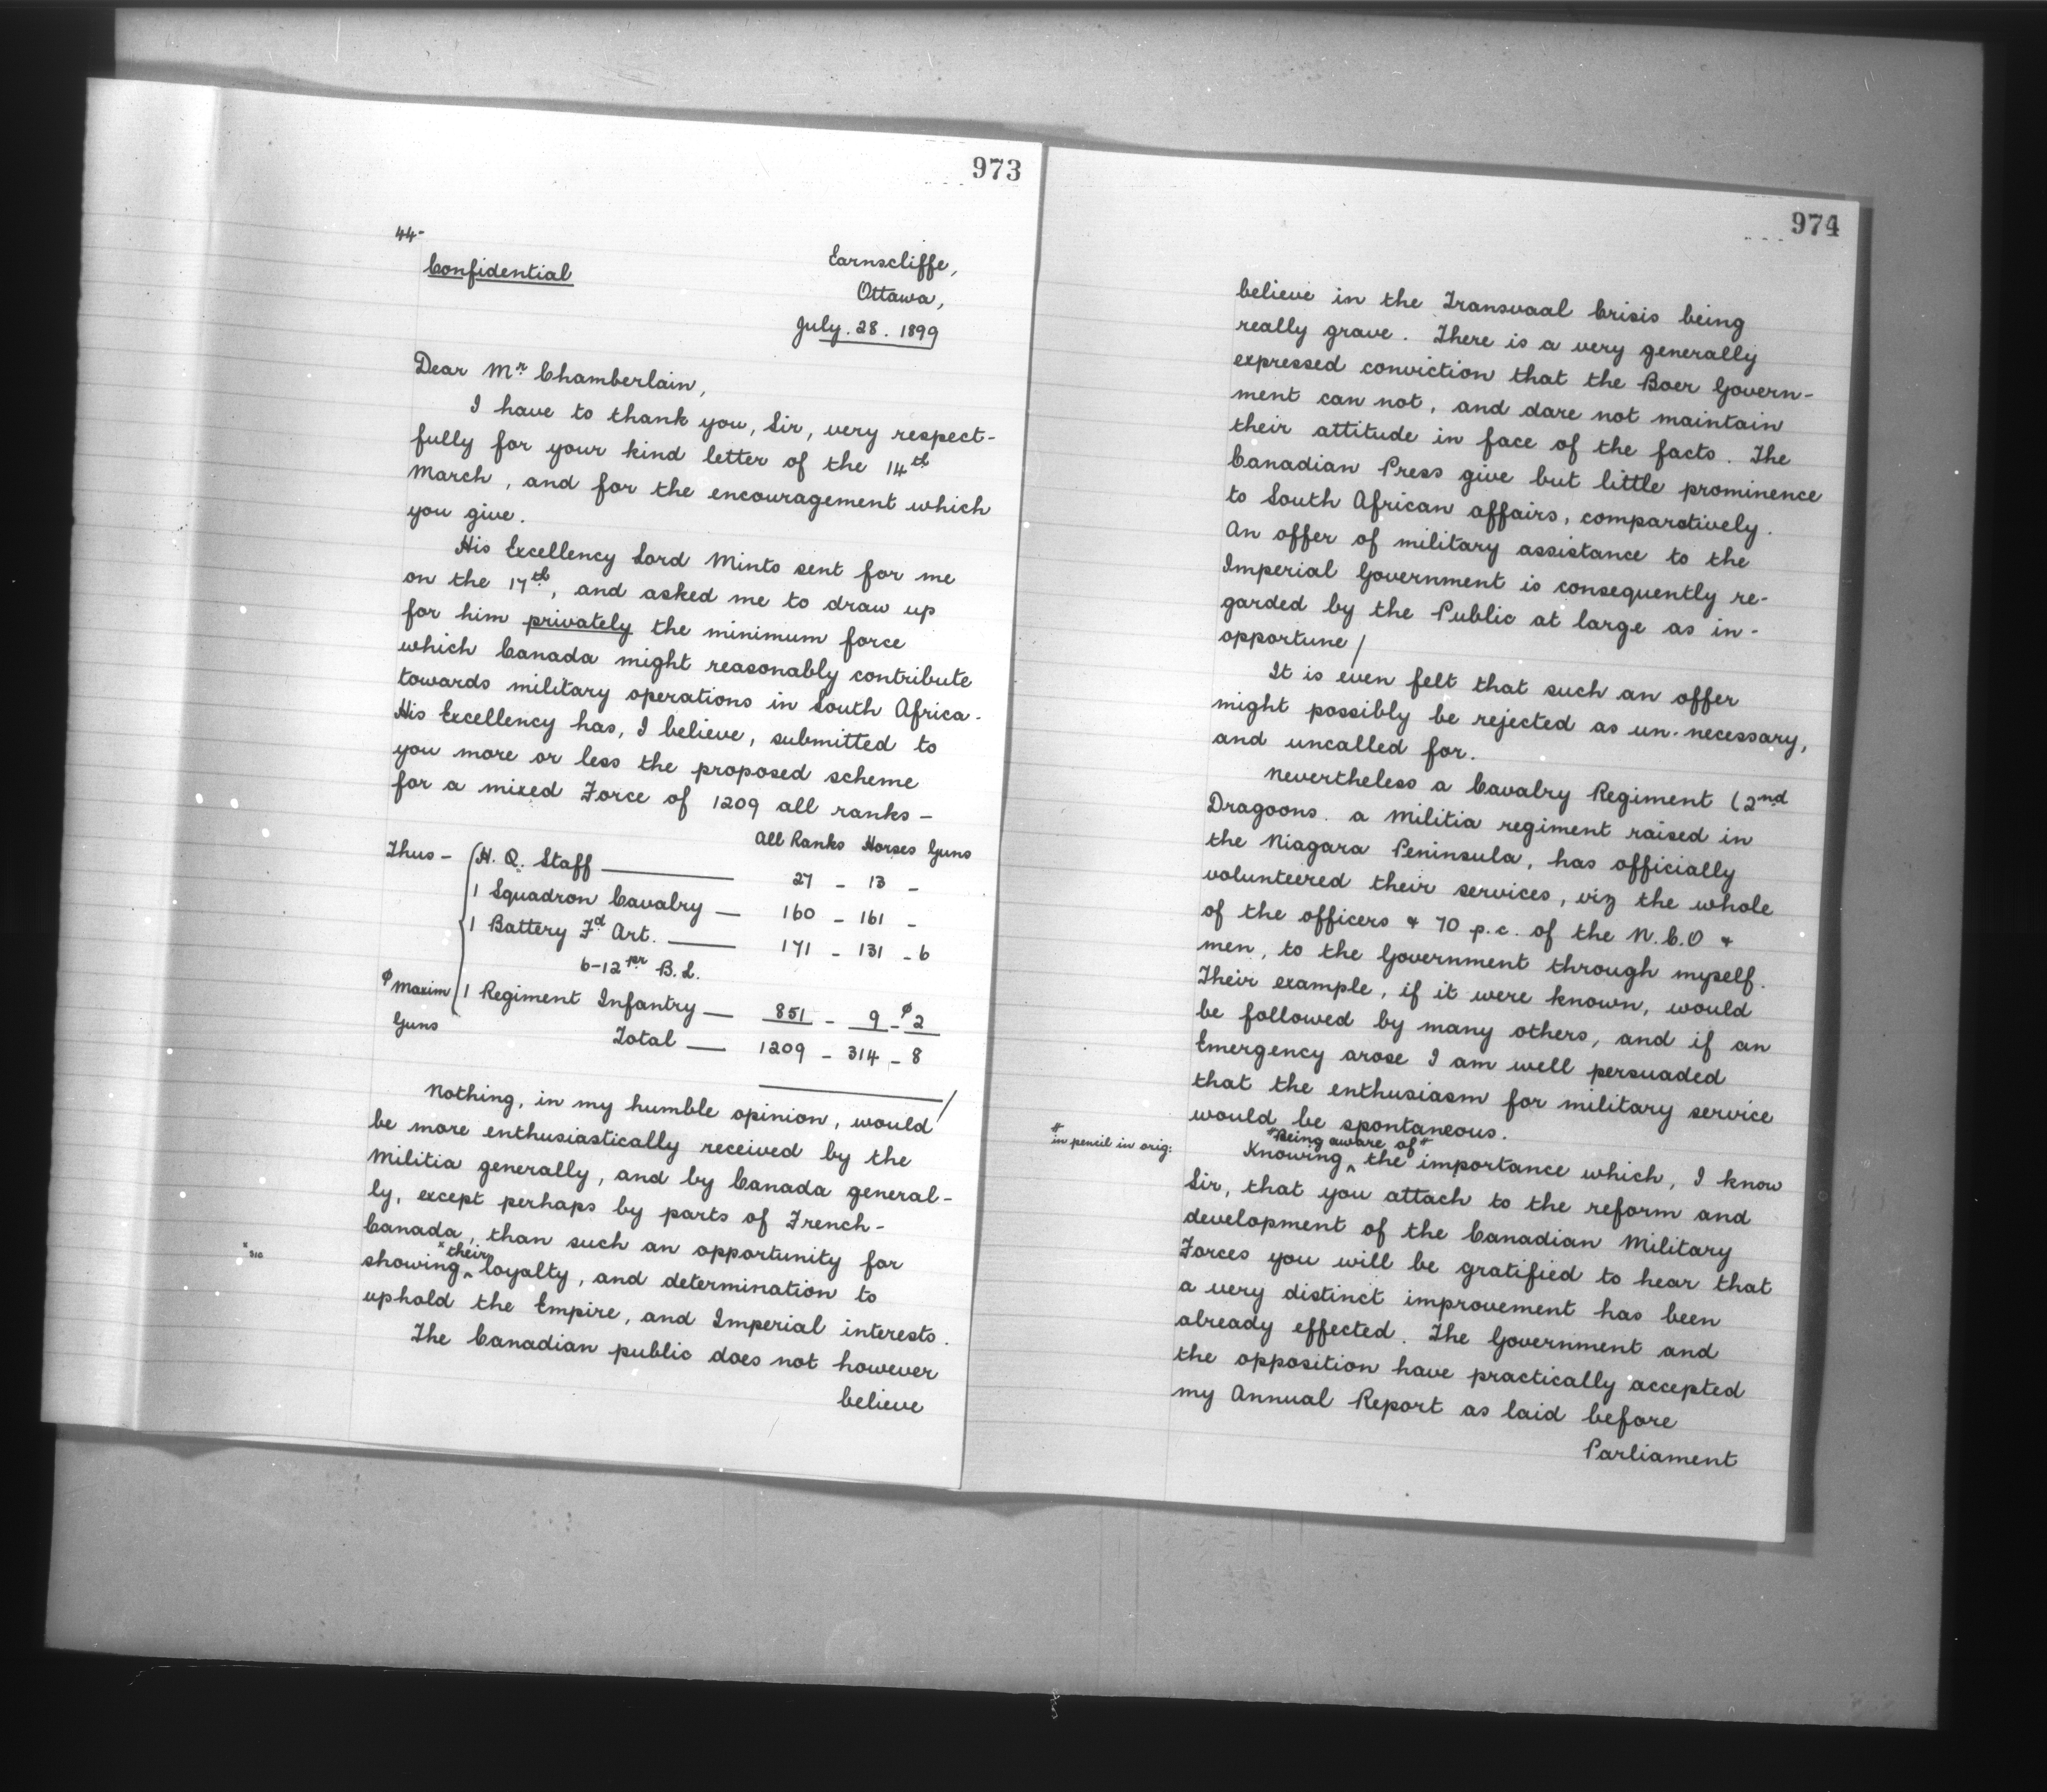 973
44-
Confidential
Earnscliffe,
Ottawa,
July. 28. 1899
Dear Mr Chamberlain,
I have to thank you, Sir, very respect-
fully for your kind letter of the 14th
March, and for the encouragement which
you give.
His Excellency Lord Minto sent for me
on the 17th, and asked me to draw up
for him privately the minimum force
which Canada might reasonably contribute
towards military operations in South Africa.
His Excellency has, I believe, submitted to
you more or less the proposed scheme
for a mixed Force of 1209 all ranks -
All Ranks Horses Guns
Thus - H. Q. Staff — 27 - 13 -
1 Squadron Cavalry — 160 - 161 -
1 Battery Fd Art. — 171 - 131 - 6
6-12pr B.L.
φ Maxim 1 Regiment Infantry — 851 - 9 - φ 2
Guns Total — 1209 - 314 - 8
Nothing, in my humble opinion, would
be more enthusiastically received by the
Militia generally, and by Canada general-
ly, except perhaps by parts of French-
Canada, than such an opportunity for
x sic
showing x their loyalty, and determination to
uphold the Empire, and Imperial interests.
The Canadian public does not however
believe
974
believe in the Transvaal Crisis being
really grave. There is a very generally
expressed conviction that the Boer Govern-
ment can not, and dare not maintain
their attitude in face of the facts. The
Canadian Press give but little prominence
to South African affairs, comparatively.
An offer of military assistance to the
Imperial Government is consequently re-
garded by the Public at large as in-
opportune /
It is even felt that such an offer
might possibly be rejected as un-necessary,
and uncalled for.
Nevertheless a Cavalry Regiment (2nd
Dragoons. a Militia regiment raised in
the Niagara Peninsula, has officially
volunteered their services, viz the whole
of the officers & 70 p.c. of the N.C.O &
men, to the Government through myself.
Their example, if it were known, would
be followed by many others, and if an
Emergency arose I am well persuaded
that the enthusiasm for military service
would be spontaneous.
# in pencil in orig:
#Being aware of#
Knowing ^ the importance which, I know
Sir, that you attach to the reform and
development of the Canadian Military
Forces you will be gratified to hear that
a very distinct improvement has been
already effected. The Government and
the opposition have practically accepted
my Annual Report as laid before
Parliament